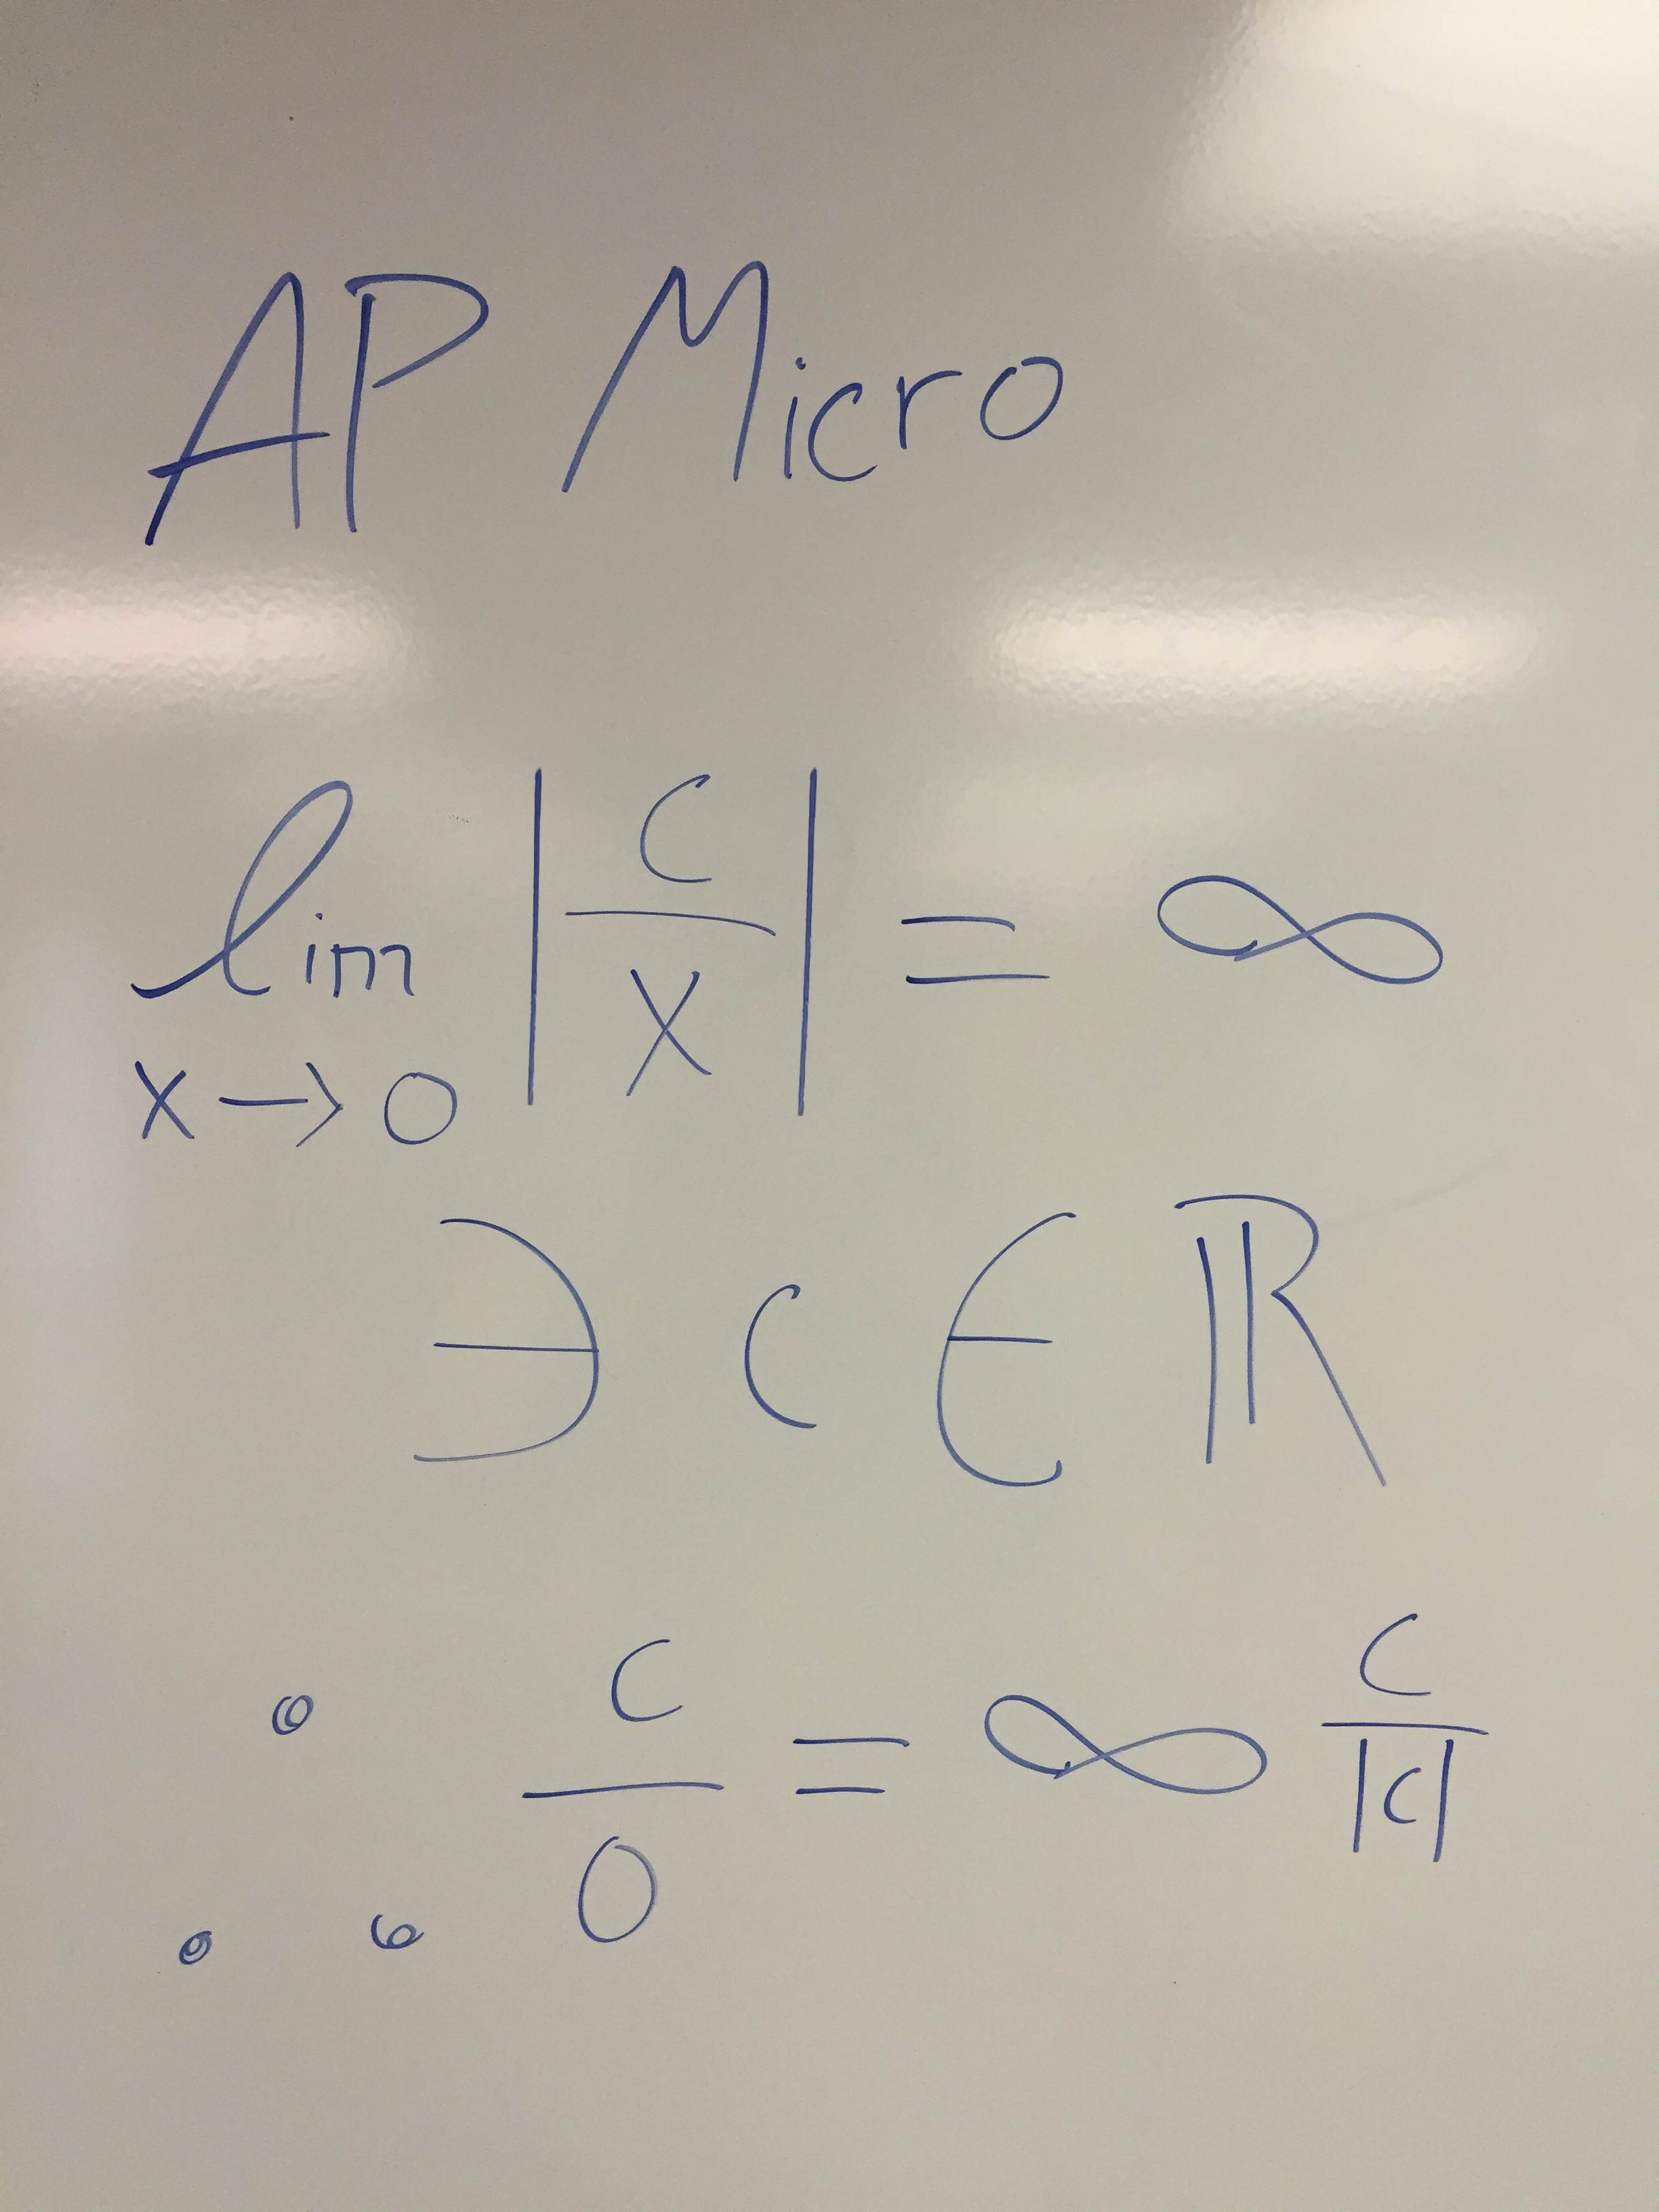 AP Micro
lim x→0 |c/x| = ∞
∋ c ∈ ℝ
∴ c/0 = ∞ c/|c|